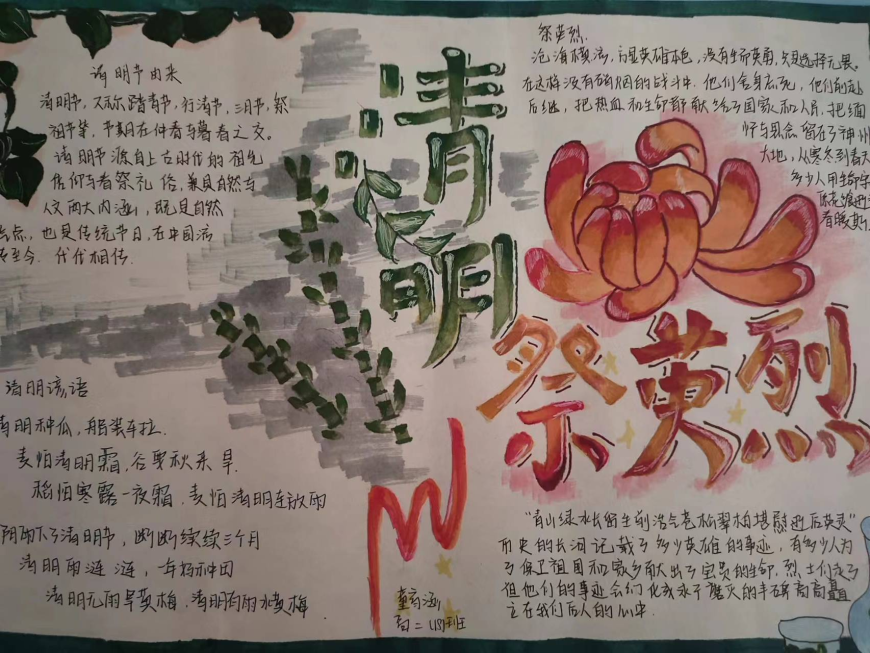 清明节由来
清明节，又称踏青节，行清节，三月节，祭
祖节等，节期在仲春与暮春之交。
清明节源自上古时代的祖先
信仰与春祭礼俗，兼具自然与
人文两大内涵，既是自然
点，也是传统节日，在中国流
至今．代代相传．
清明谚语
清明种瓜，船装车拉．
麦怕清明霜，谷要秋来旱．
稻怕寒露一夜霜．麦怕清明连放雨
阴雨下了清明节，断断续续三个月
清明雨涟涟，一年好种田
清明无雨旱黄梅，清明有雨水黄梅
清明
祭英烈
祭英烈．
沧海横流，方显英雄本色，没有生而英勇，只是选择无畏。
在这样没有硝烟的战斗中．他们舍身忘死，他们前赴
后继，把热血和生命都献给了国家和人民，把缅
怀与思念留在了神州
大地，从寒冬到春天
多少人用生命守
春暖
"青山绿水长留生前浩气苍松翠柏堪慰逝后英灵"
历史的长河记载了多少英雄的事迹，有多少人为
了保卫祖国和家乡献出了宝贵的生命．烈士们
但他们的事迹会们化成永不磨灭的丰碑高高矗
立在我们后人的心中．
董
高二（13）班